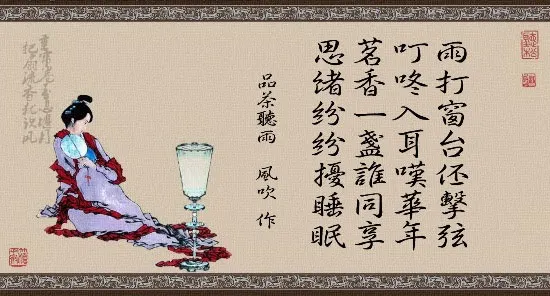 雨打窗台伾擊弦
叮咚入耳嘆華年
茗香一盞誰同享
思緒紛紛擾睡眠
品茶聽雨 風吹 作